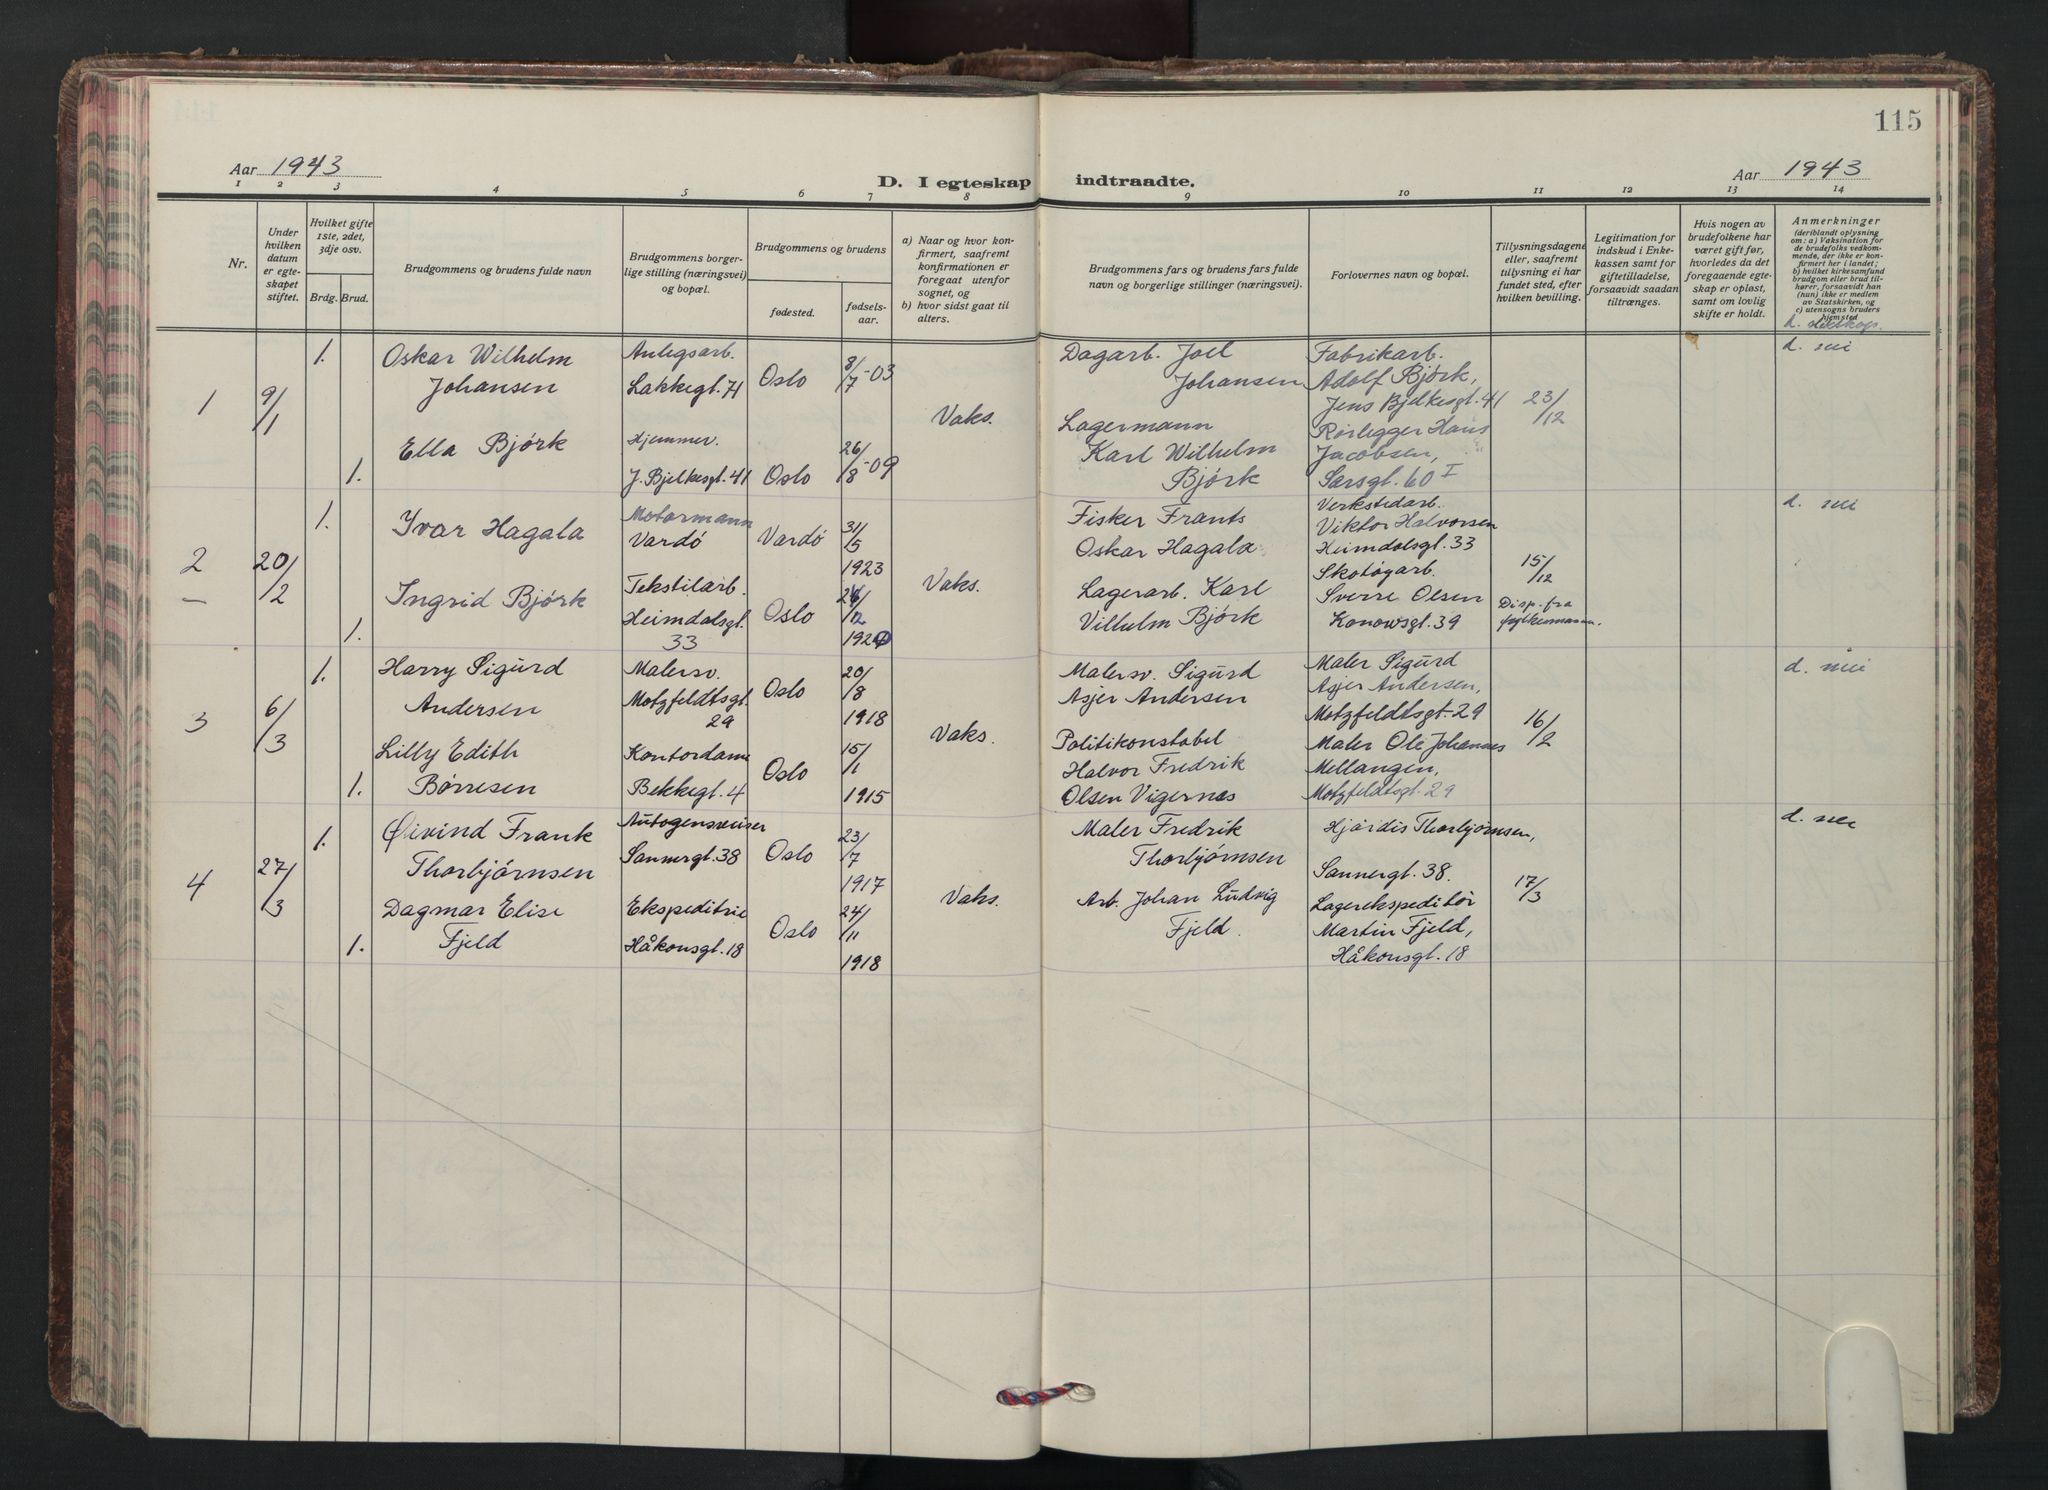 115
Aar 1943
D. I egteskap indtraadte.
Aar 1943
1 2 3 4 5 6 7 8 9 10 11 12 13 14
Nr.
Under hvilken datum er egteskapet stiftet.
Hvilket gifte 1ste, 2det, 3dje osv.
Brdg. Brud.
Brudgommens og brudens fulde navn
Brudgommens borgerlige stilling (næringsvei) og bopæl.
Brudgommens og brudens
fødested.
fødselsaar.
a) Naar og hvor konfirmert, saafremt konfirmationen er foregaat utenfor sognet, og
b) hvor sidst gaat til alters.
Brudgommens fars og brudens fars fulde navn og borgerlige stillinger (næringsvei).
Forlovernes navn og bopæl.
Tillysningsdagene eller, saafremt tillysning ei har fundet sted, efter hvilken bevilling.
Legitimation for indskud i Enkekassen samt for giftetilladelse, forsaavidt saadan tiltrænges.
Hvis nogen av brudefolkene har været gift før, hvorledes da det foregaaende egteskap er opløst, samt om lovlig skifte er holdt.
Anmerkninger
(deriblandt oplysning om: a) Vaksination for de brudefolks vedkommende, der ikke er konfirmert her i landet;
b) hvilket kirkesamfund brudgom eller brud tilhører, forsaavidt han (hun) ikke er medlem av Statskirken, og
c) utensogns bruders hjemsted
d. slektskap.
1
9/1
1.
Oskar Wilhelm
Johansen
Anlegsarb.
Lakkegt. 71
Oslo
8/7 -03
Vaks.
Dagarb. Joel
Johansen
Fabrikarb.
Adolf Bjørk,
Jens Bjelkesgt. 41
23/12
d. nei
1.
Ella Bjørk
Hjemmev.
J. Bjelkesgt. 41
Oslo
26/8 -09
Lagermann
Karl Wilhelm
Bjørk
Rørlegger Hans
Jacobsen,
Sarsgt. 60 I
2
—
20/2
1.
Ivar Hagala
Motormann
Vardö
Vardö
31/5
1923
Vaks.
Fisker Frants
Oskar Hagala
Verkstedarb.
Viktor Halvorsen
Heimdalsgt. 33
15/12
Disp. fra
fylkesmann.
d. nei
1.
Ingrid Bjørk
Tekstilarb.
Heimdalsgt.
33
Oslo
Lagerarb. Karl
Vilhelm Bjørk
Skotøyarb.
Sverre Olsen
Konowsgt. 39
3
6/3
1.
Harry Sigurd
Andersen
Malersv.
Motzfeldtsgt.
29
Oslo
20/8
1918
Vaks.
Malersv. Sigurd
Asjer Andersen
Maler Sigurd
Asjer Andersen,
Motzfeldtsgt. 29
16/2
d. nei
1.
Lilly Edith
Børresen
Kontordame
Bekkegt. 4
Oslo
15/1
1915
Politikonstabel
Halvor Fredrik
Olsen Vigernes
Maler Ole Johannes
Mellangen,
Motzfeldtsgt. 29
4
27/3
1.
Øivind Frank
Thorbjørnsen
Autogensveiser
Sannergt. 38
Oslo
23/7
1917
Vaks.
Maler Fredrik
Thorbjørnsen
Hjördis Thorbjørnsen,
Sannergt. 38.
17/3
d. nei
1.
Dagmar Elise
Fjeld
Ekspeditrise
Håkonsgt. 18
Oslo
24/11
1918
Arb. Johan Ludvig
Fjeld.
Lagerekspeditør
Martin Fjeld,
Håkonsgt. 18